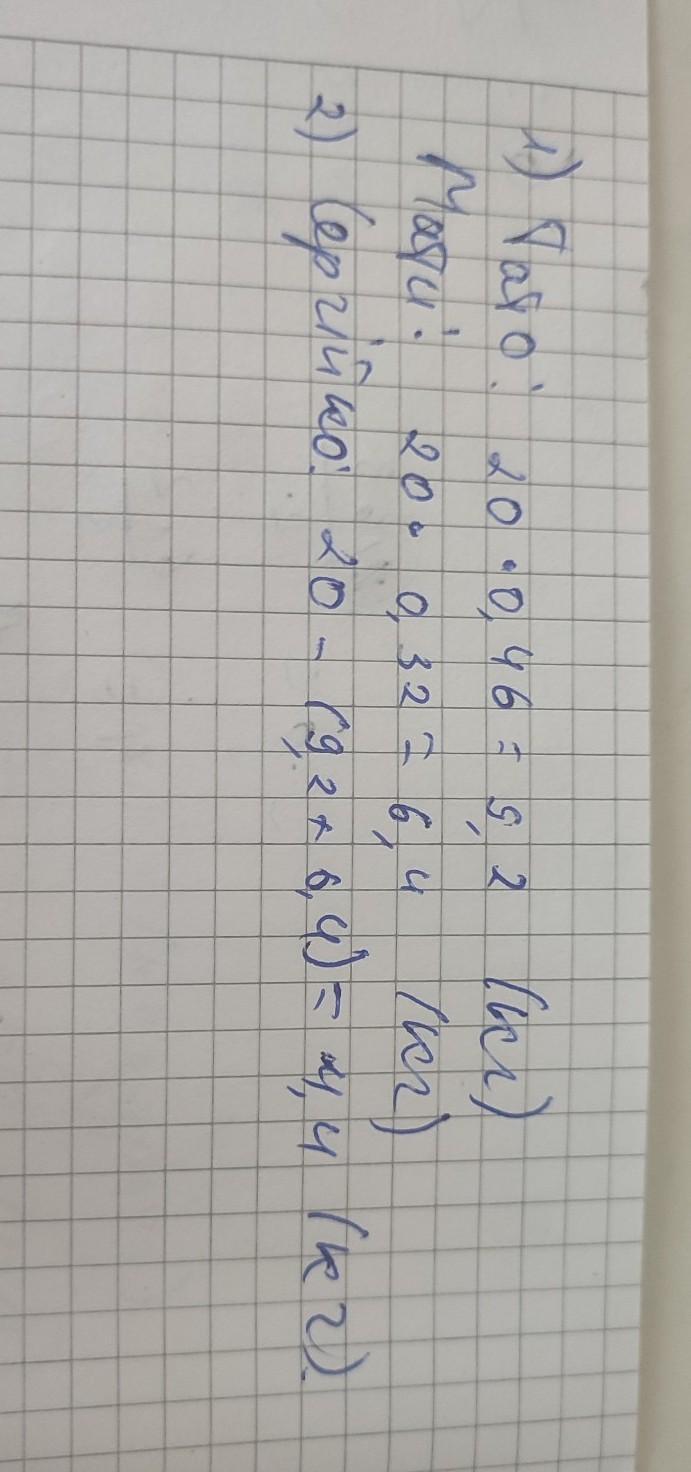 1) Тато: 20 · 0,46 = 9,2 (кг)
Мати: 20 · 0,32 = 6,4 (кг)
2) Сергійко: 20 - (9,2 + 6,4) = 4,4 (кг)